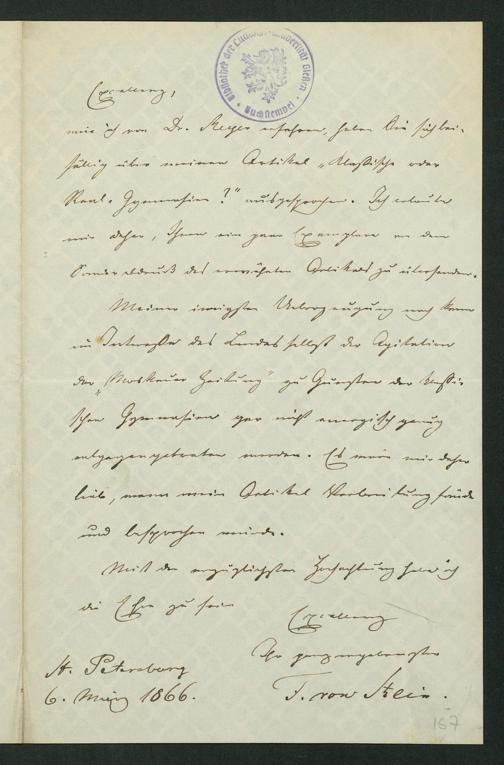 Bibliothek der Ludwigs-Universität Gießen
Buchstempel
Excellenz,
wie ich von Dr. Meyer erfahren, haben Sie sich bei-
fällig über meinen Artikel „Klassische oder
Real-Gymnasien?" ausgesprochen. Ich erlaube
mir daher, Ihnen ein paar Exemplare von dem
Sonderabdruck des erwähnten Artikels zu übersenden.
Meiner innigsten Ueberzeugung nach kann
im Interesse des Landes selbst der Agitation
der „Moskauer Zeitung" zu Gunsten der klassi-
schen Gymnasien gar nicht energisch genug
entgegengetreten werden. Es wäre mir daher
lieb, wenn mein Artikel Verbreitung fände
und besprochen würde.
Mit der vorzüglichsten Hochachtung habe ich
die Ehre zu sein
Excellenz
Ihr ganz ergebenster
St. Petersburg
6. März 1866. F. von Stein.
167